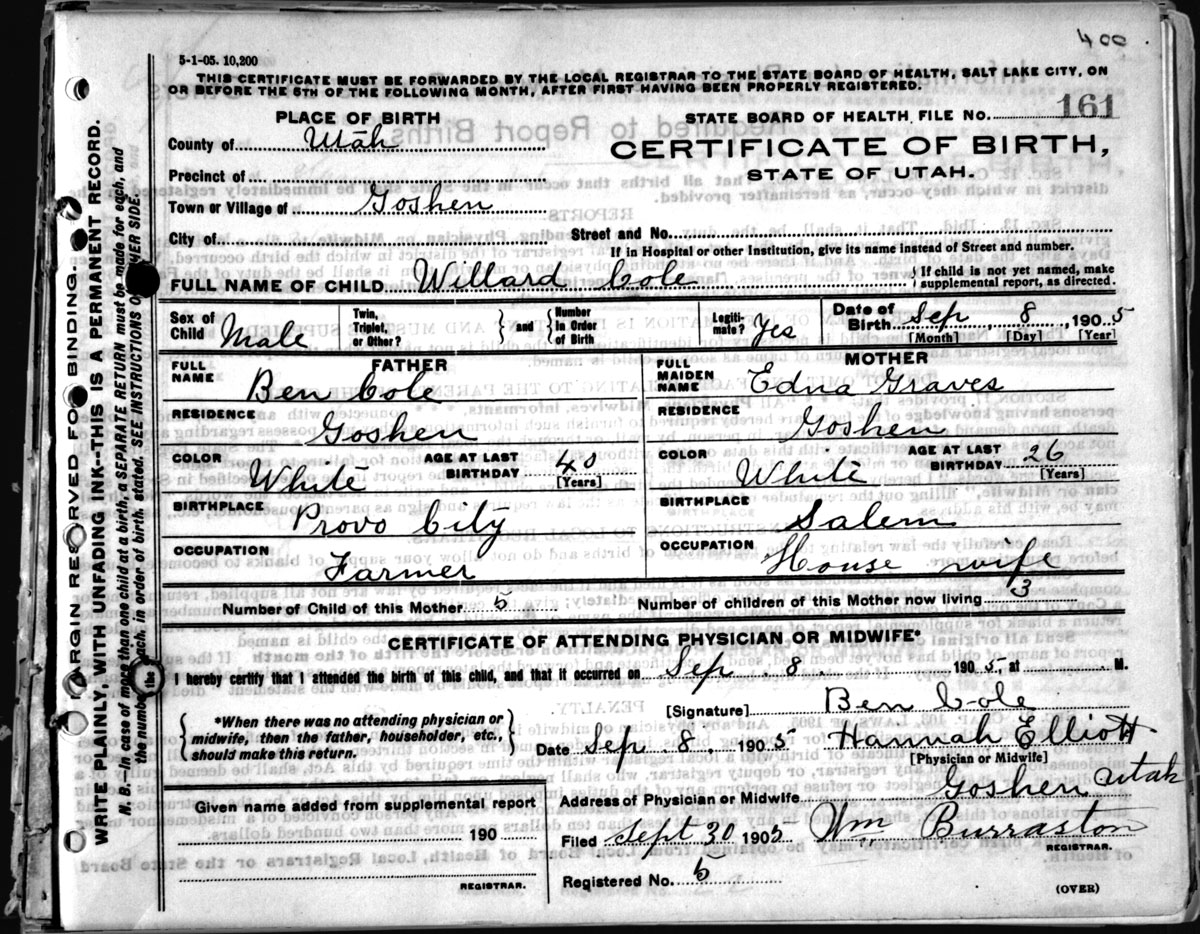 400
5-1-05. 10,200
THIS CERTIFICATE MUST BE FORWARDED BY THE LOCAL REGISTRAR TO THE STATE BOARD OF HEALTH, SALT LAKE CITY, ON
OR BEFORE THE 5TH OF THE FOLLOWING MONTH, AFTER FIRST HAVING BEEN PROPERLY REGISTERED.
PLACE OF BIRTH
STATE BOARD OF HEALTH FILE NO. 161
County of Utah
CERTIFICATE OF BIRTH,
Precinct of
STATE OF UTAH.
Town or Village of Goshen
City of Street and No.
If in Hospital or other Institution, give its name instead of Street and number.
FULL NAME OF CHILD Willard Cole
{ If child is not yet named, make
supplemental report, as directed.
Sex of Child Male
Twin, Triplet, or Other? } and { Number in Order of Birth
Legitimate? Yes
Date of Birth Sep 8 1905
[Month] [Day] [Year]
FATHER
FULL NAME Ben Cole
RESIDENCE Goshen
COLOR White AGE AT LAST BIRTHDAY 40 [Years]
BIRTHPLACE Provo City
OCCUPATION Farmer
MOTHER
FULL MAIDEN NAME Edna Graves
RESIDENCE Goshen
COLOR White AGE AT LAST BIRTHDAY 26 [Years]
BIRTHPLACE Salem
OCCUPATION House wife
Number of Child of this Mother 5 Number of children of this Mother now living 3
CERTIFICATE OF ATTENDING PHYSICIAN OR MIDWIFE*
I hereby certify that I attended the birth of this child, and that it occurred on Sep. 8. 1905, at M.
{ *When there was no attending physician or
midwife, then the father, householder, etc.,
should make this return. }
[Signature] Ben Cole
Date Sep. 8. 1905 Hannah Elliott
[Physician or Midwife]
Given name added from supplemental report
190
REGISTRAR.
Address of Physician or Midwife Goshen Utah
Filed Sept 30 1905 Wm Burraston
REGISTRAR.
Registered No. 5
(OVER)
MARGIN RESERVED FOR BINDING.
WRITE PLAINLY, WITH UNFADING INK--THIS IS A PERMANENT RECORD.
N. B.--In case of more than one child at a birth, a SEPARATE RETURN must be made for each, and
the number of each, in order of birth, stated. SEE INSTRUCTIONS ON OTHER SIDE.